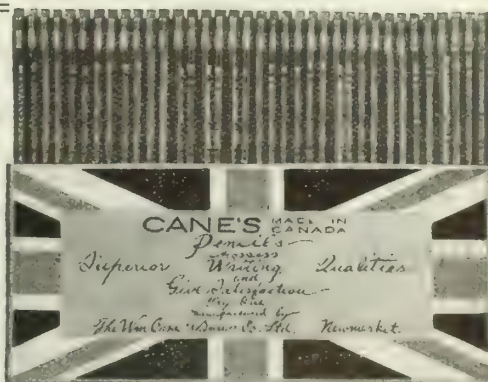 CANE'S MADE IN
CANADA
Pencils
Possess
Superior Writing Qualities
and
Give Satisfaction
They are
manufactured by
The Wm Cane & Sons Co. Ltd. Newmarket.